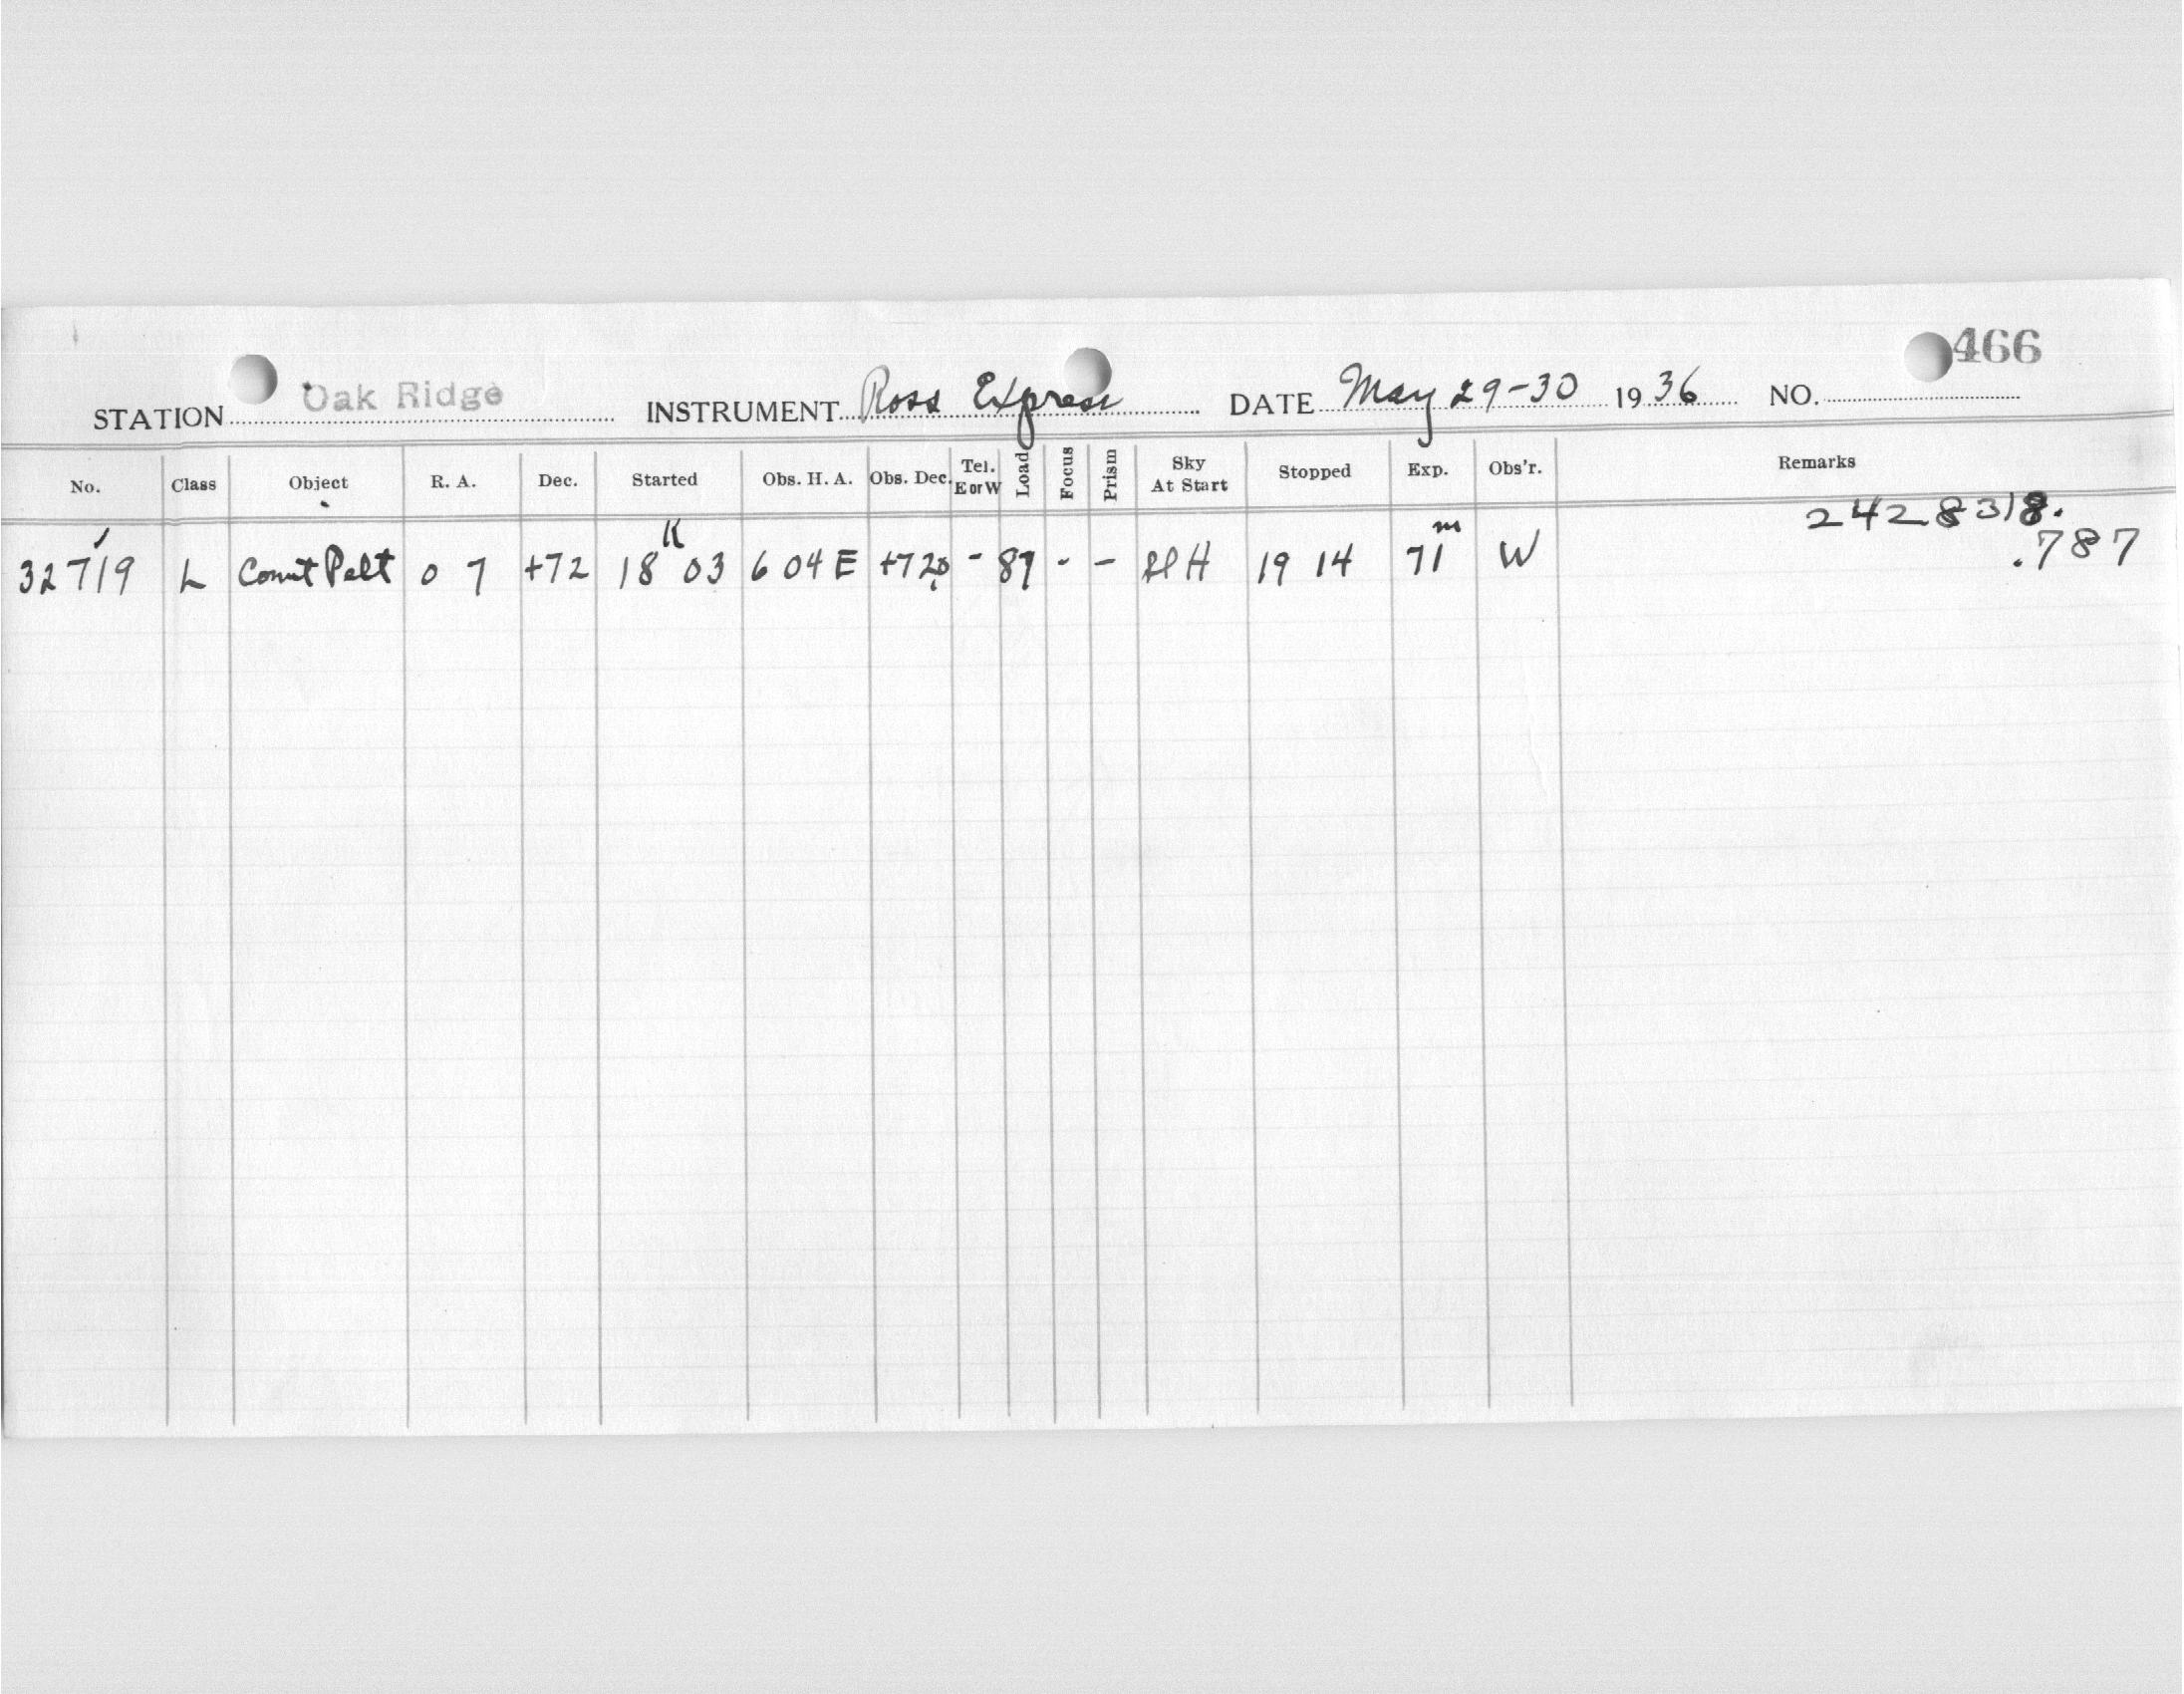 466
STATION Oak Ridge INSTRUMENT Ross Express DATE May 29-30 1936 NO.
No. Class Object R. A. Dec. Started Obs. H. A. Obs. Dec. Tel. E or W Load Focus Prism Sky At Start Stopped Exp. Obs'r. Remarks
2428318.
32719 L Comet Pelt 0 7 +72 18h 03 6 04 E +72.0 - 87 - - H 19 14 71m W .787